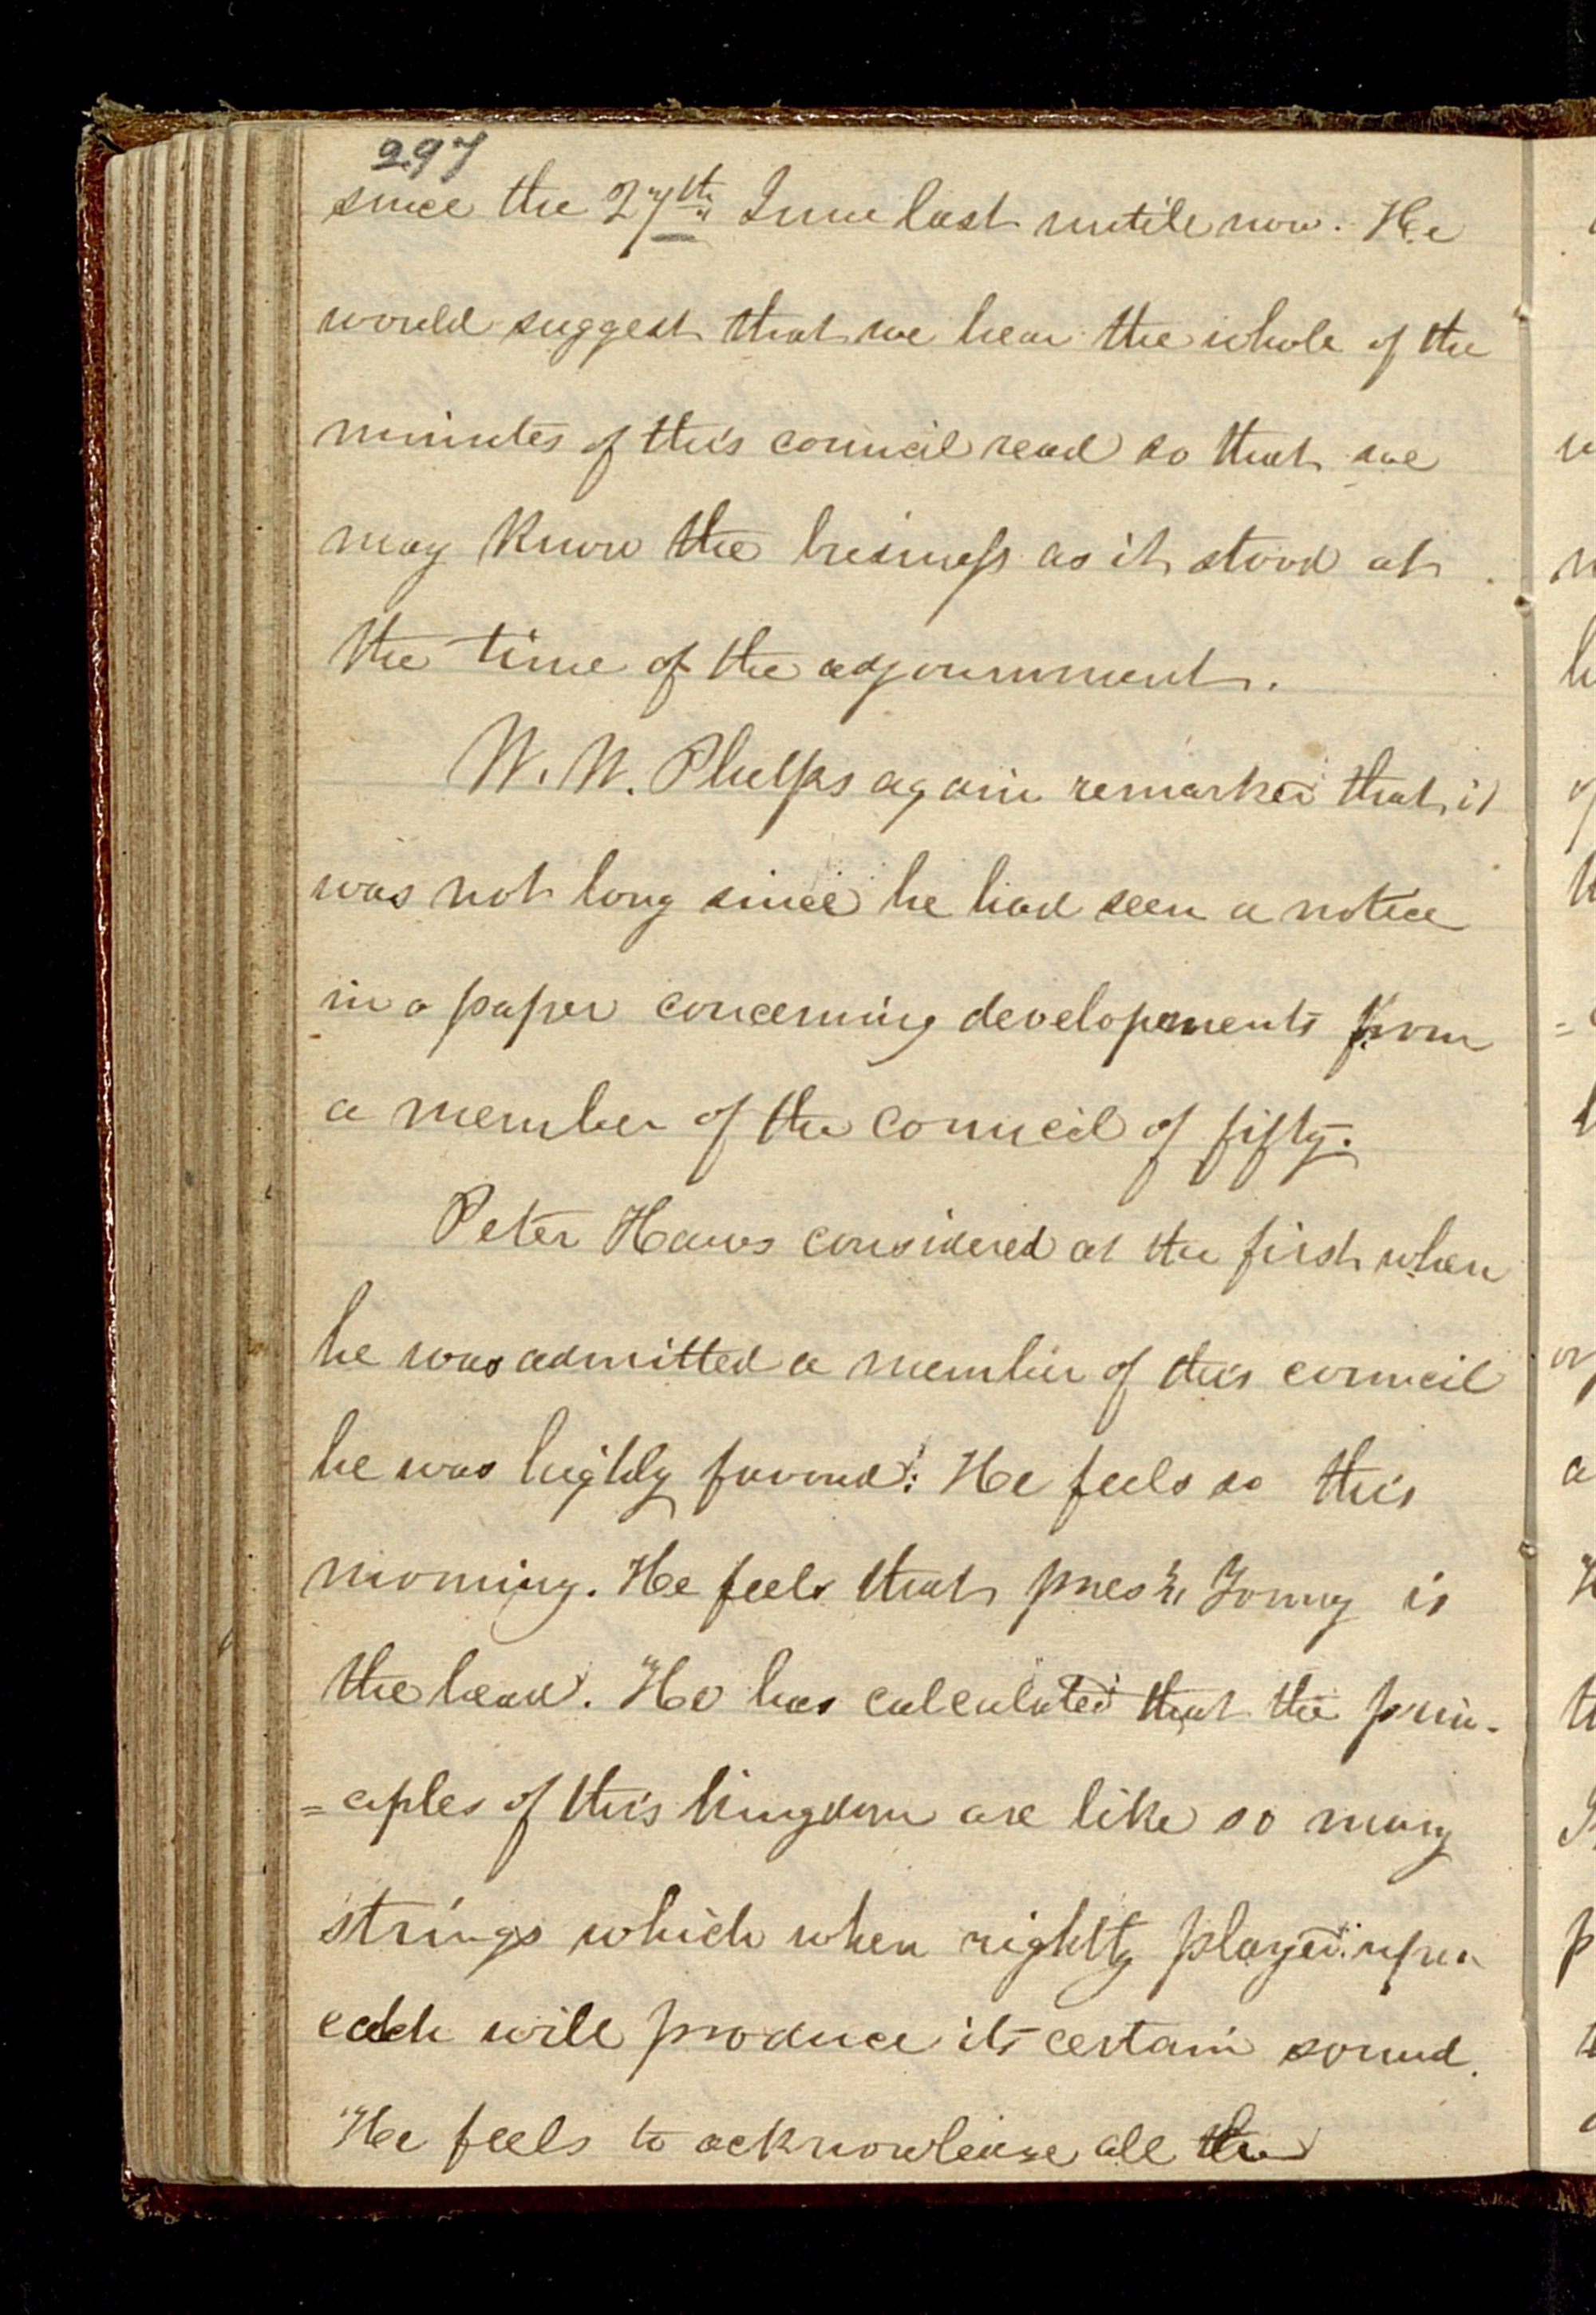 297
since the 27th June last until now. He
would suggest that we hear the whole of the
minutes of this council read so that we
may know the business as it stood at
the time of the adjournment.
W. W. Phelps again remarked that it
was not long since he had seen a notice
in a paper concerning developements from
a member of the council of fifty.
Peter Haws considered at the first when
he was admitted a member of this council
he was highly favored. He feels so this
morning. He feels that prest. Young is
the head. He has calculated that the prin-
=ciples of this kingdom are like so many
strings which when rightly played upon
each will produce its certain sound.
He feels to acknowledge all the